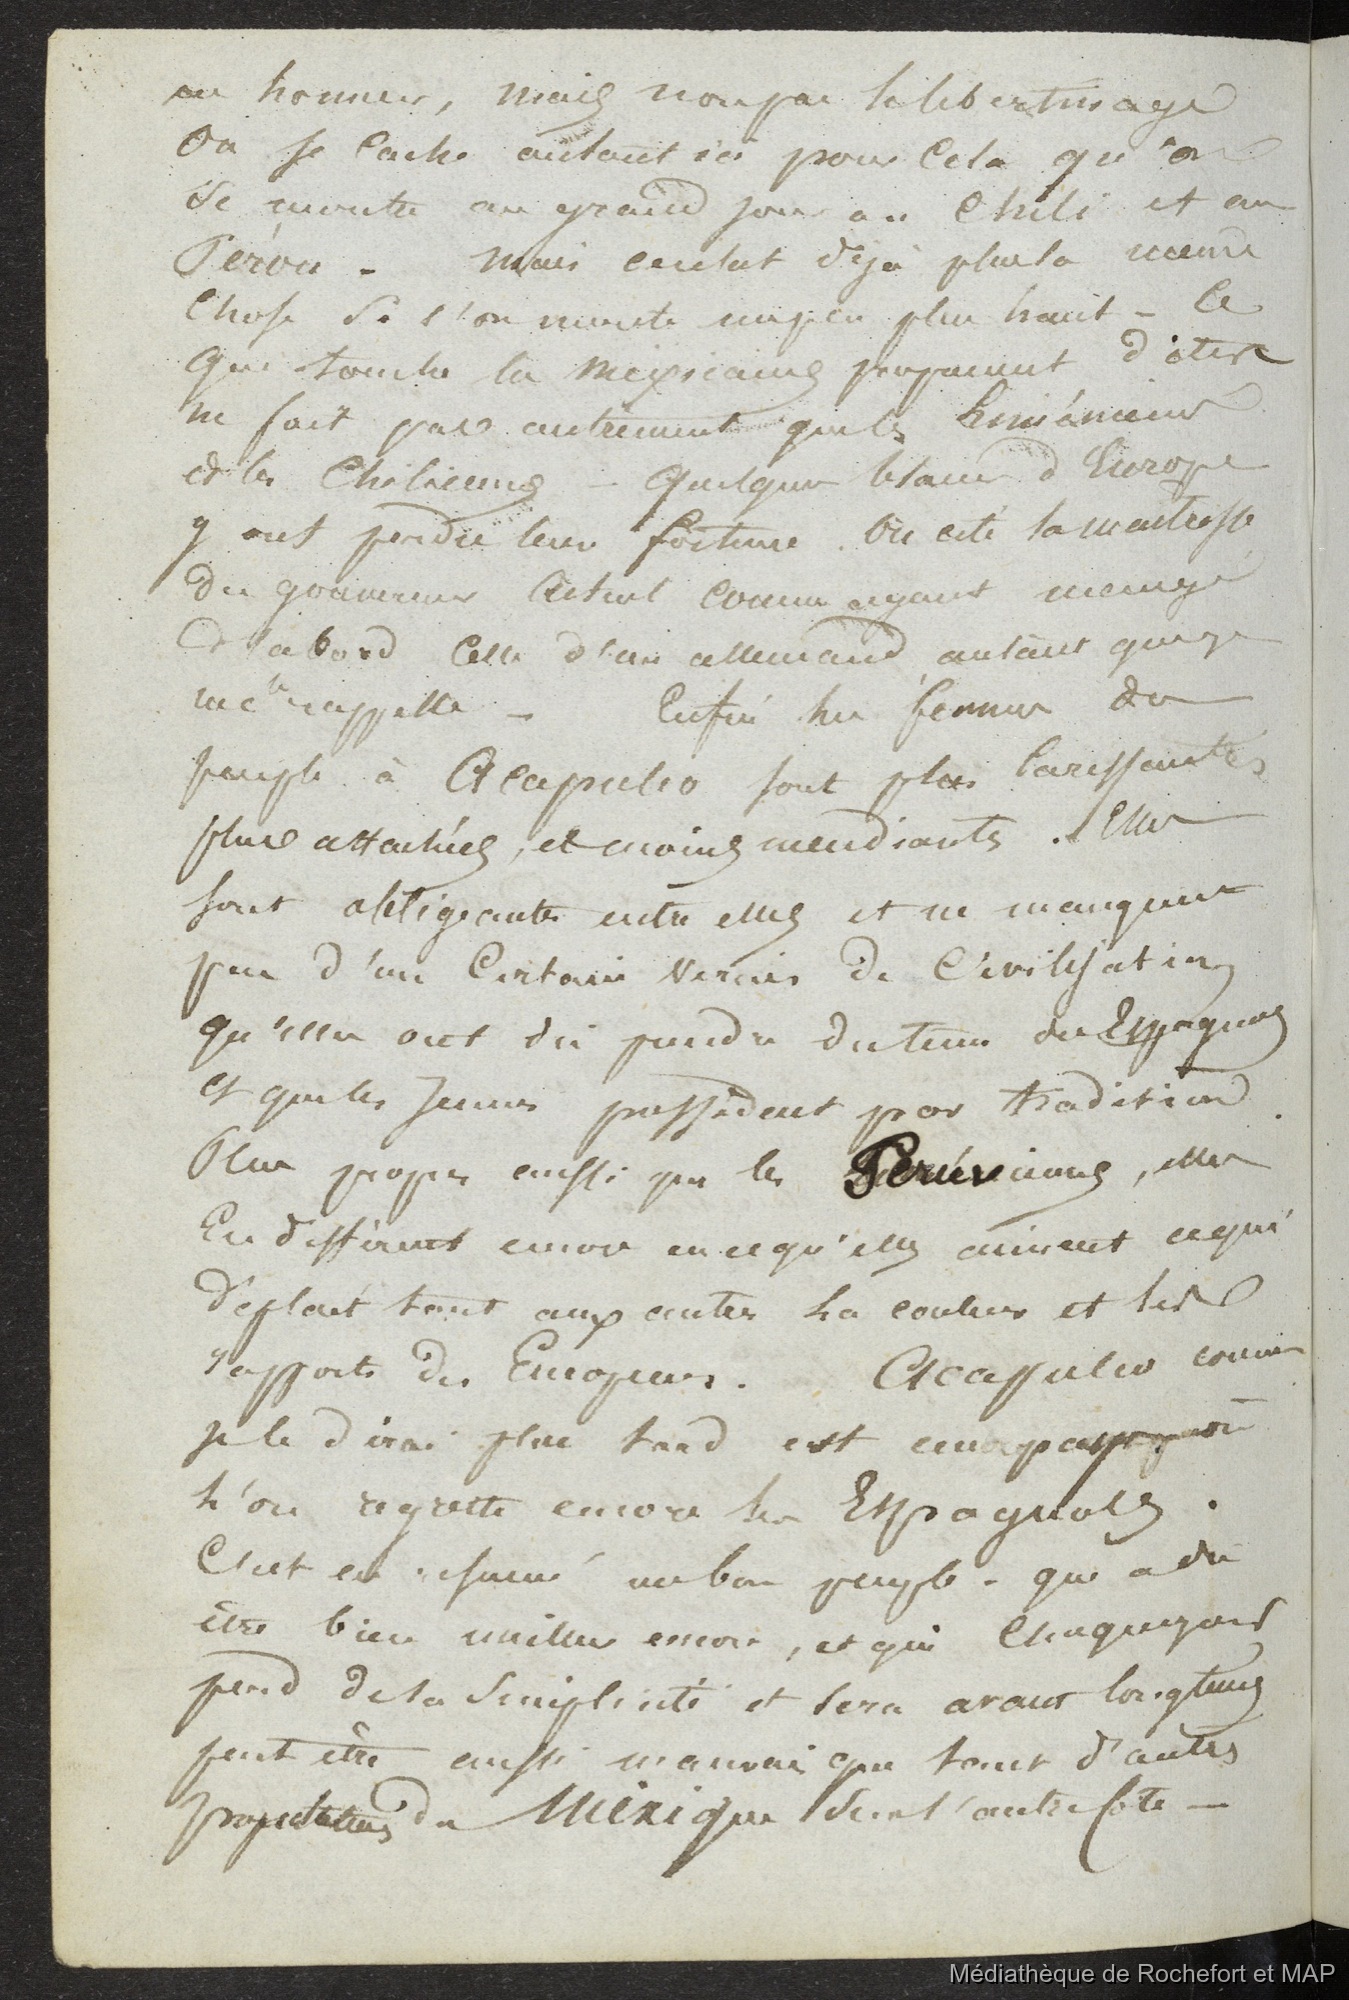 en honneur, mais non pas le libertinage
On se cache autant ici pour cela qu'on
se montre au grand jour au Chili et au
Pérou - mais ce n'est déjà plus la même
Chose si l'on monte un peu plus haut - Ce
qui touche les mexicaines proprement dites
ne fait pas autrement que les
et les Chiliennes - Quelques blancs d'Europe
y ont perdu leur fortune. On cite la maîtresse
du gouverneur actuel comme ayant mangé
d'abord celle d'un allemand, autant que je
me le rappelle - Enfin les femmes du
peuple à Acapulco sont plus caressantes
plus attachées, et moins mendiantes. Elles
sont obligeantes entre elles et ne manquent
pas d'un certain vernis de Civilisation
qu'elles ont dû prendre du tems des Espagnols
et que les jeunes possèdent par tradition
Plus propres aussi que les Péruviennes, elles
En diffèrent encore en ce qu'elles aiment ce qui
déplait tant aux autres la couleur et les
rapports des Européens. Acapulco comme
je le dirai plus tard est un pays où
l'on regrette encore les Espagnols.
C'est en résumé un bon peuple - qui a dû
être bien meilleur encore, et qui chaque jour
perd de sa simplicité et sera avant longtems
peut être aussi mauvais que tant d'autres
populations du Mexique sur l'autre côte -
Médiathèque de Rochefort et MAP